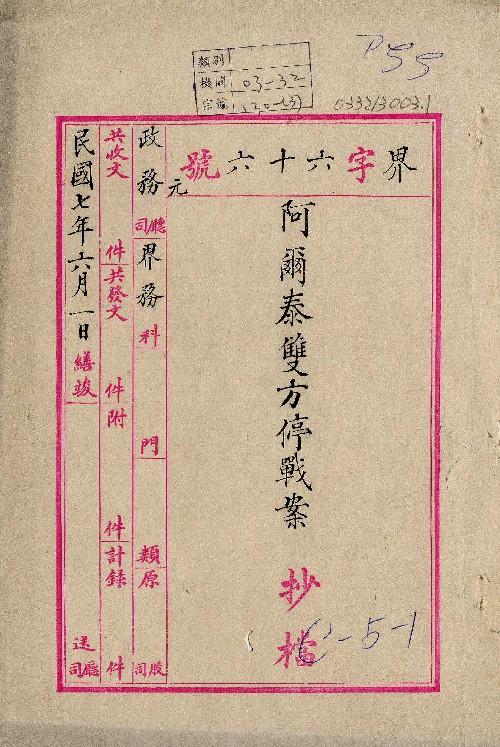 P55
類別
機關 03-32
宗號
0332/3003.1
界字六十六號
元
阿爾泰雙方停戰案
抄檔
C-5-1
政務廳司界務科 門 類原 股司
共收文 件共發文 件附 件計錄 件
民國七年六月一日繕竣 送廳司